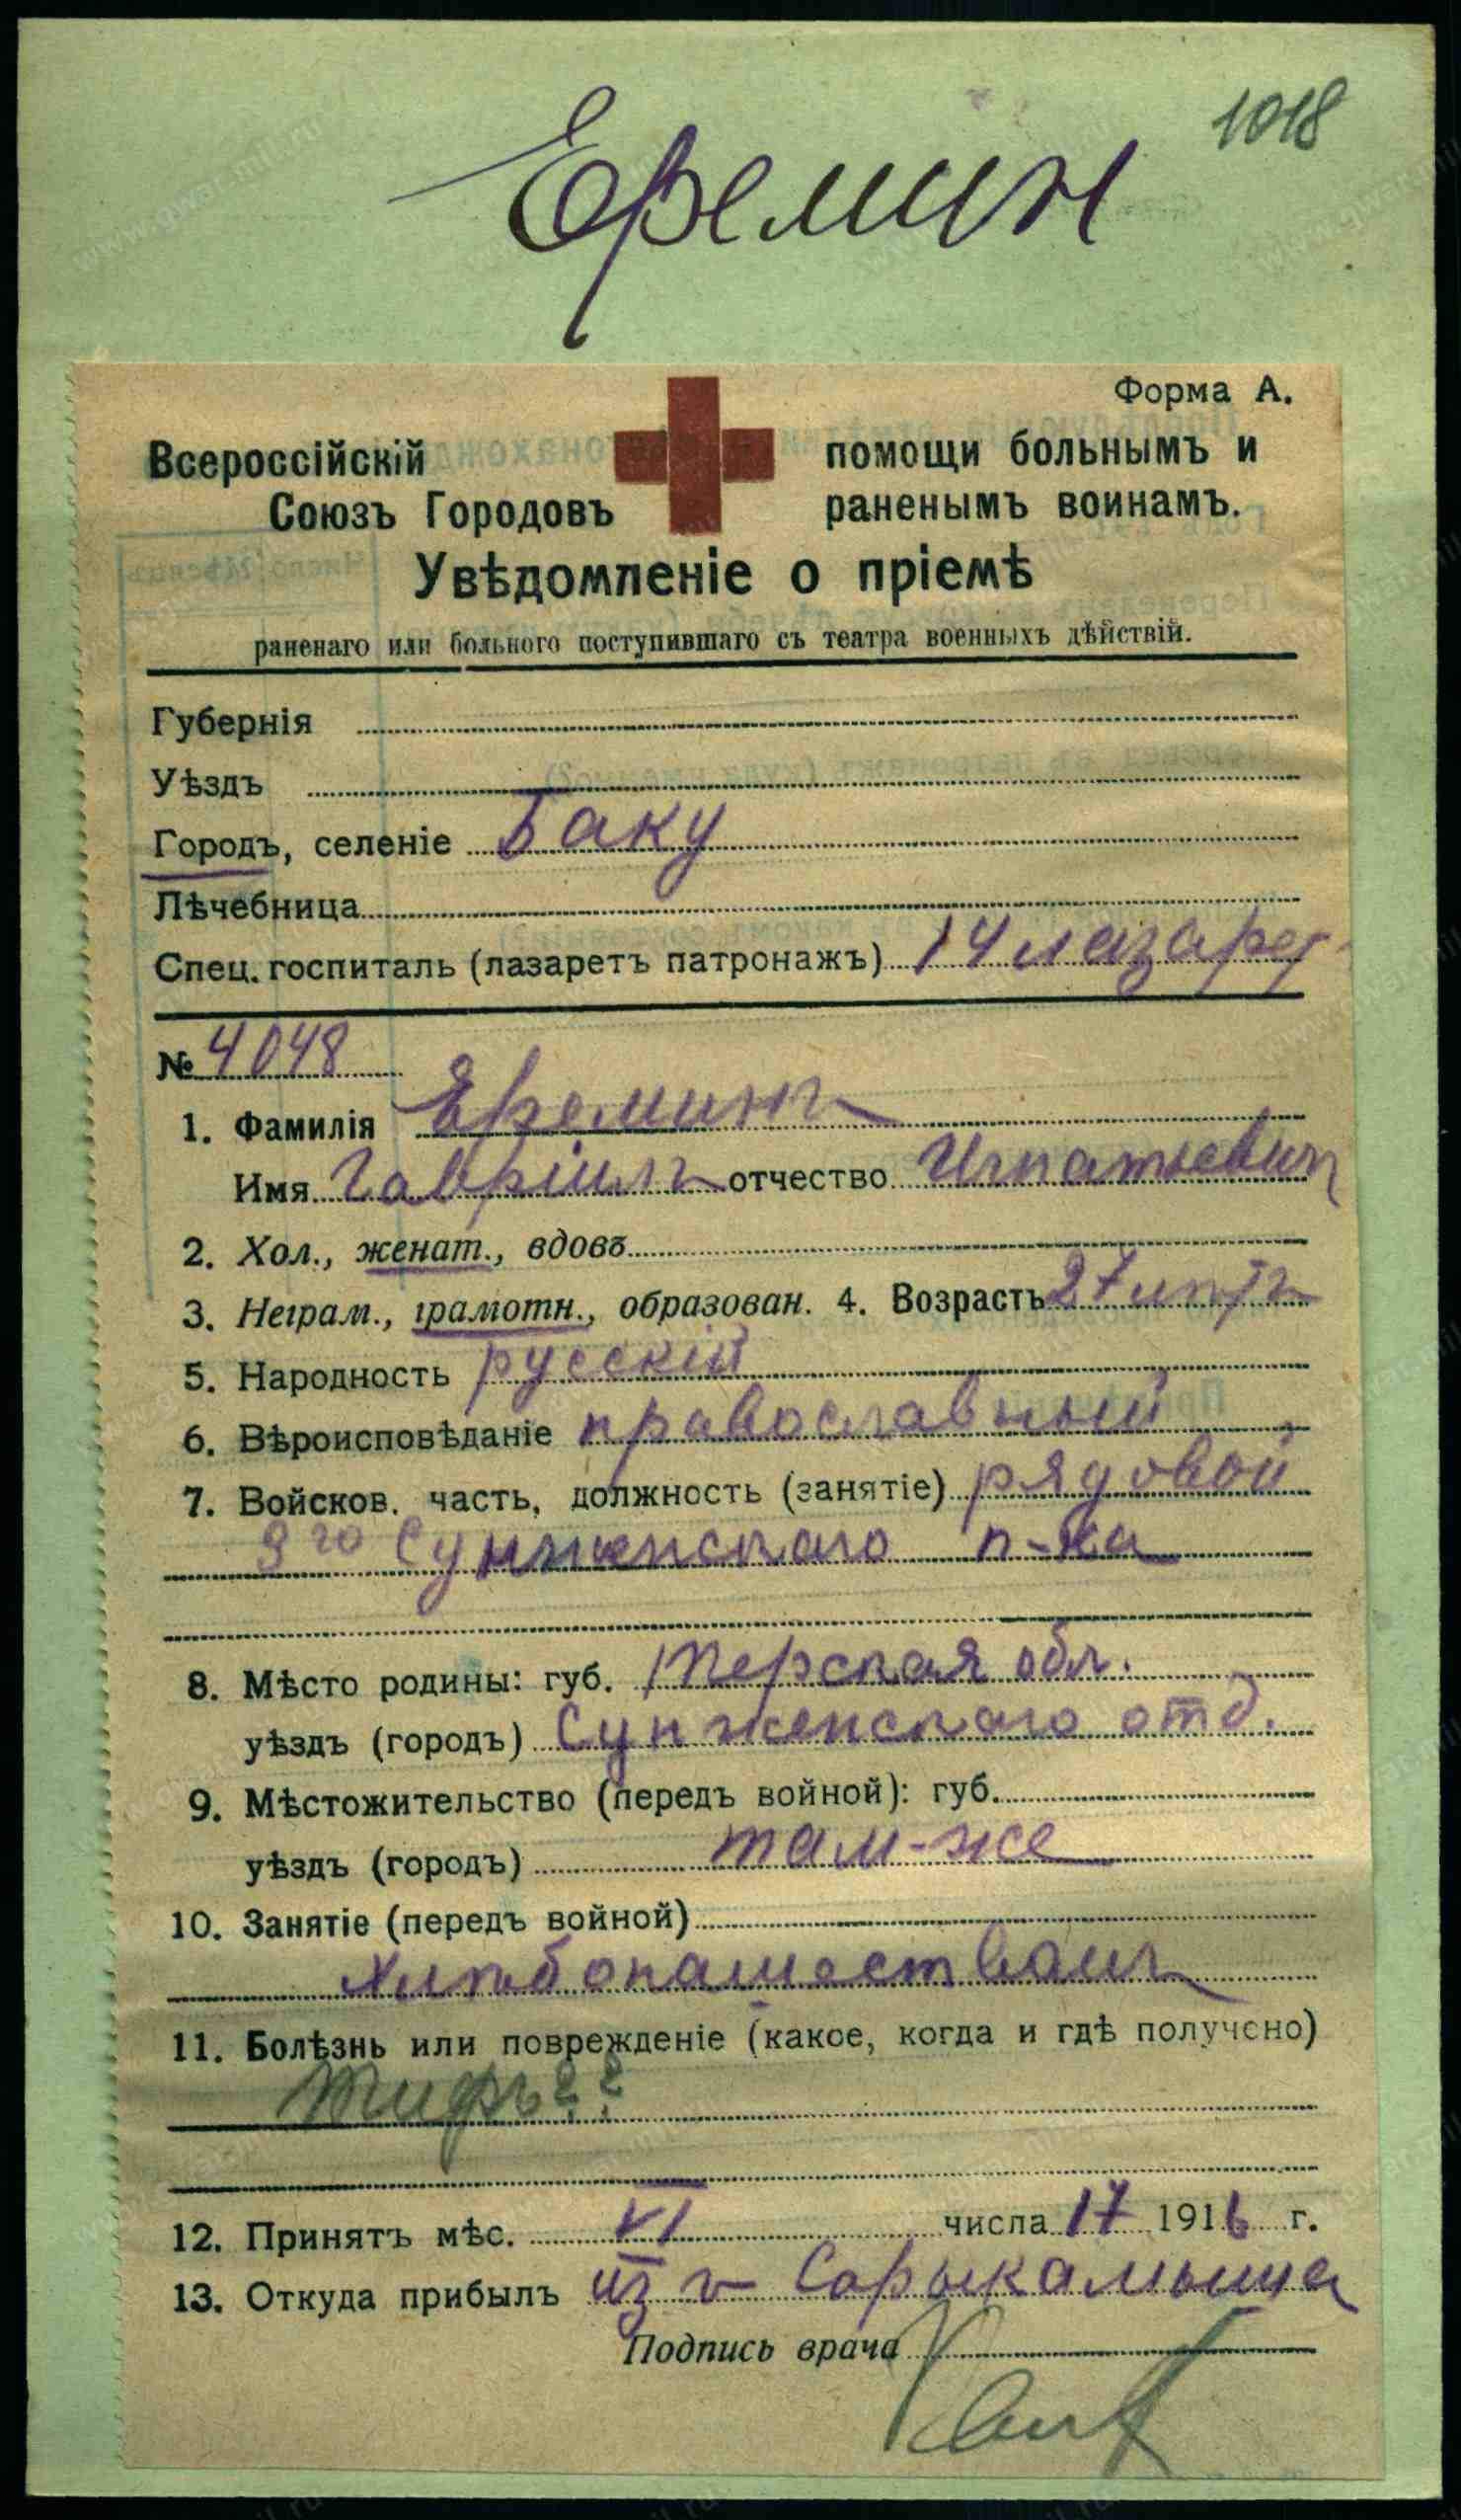 1018
Еремин
Форма А.
Всероссійскій помощи больнымъ и
Союзъ Городовъ раненымъ воинамъ.
Увѣдомленіе о пріемѣ
раненаго или больного поступившаго съ театра военныхъ дѣйствій.
Губернія
Уѣздъ
Городъ, селеніе Баку
Лѣчебница
Спец. госпиталь (лазаретъ патронажъ) 14 лазарет
№ 4048
1. Фамилія Ереминъ
Имя Гавріилъ отчество Игнатьевич
2. Хол., женат., вдовъ
3. Неграм., грамотн., образован. 4. Возрастъ 27 лѣтъ
5. Народность русскій
6. Вѣроисповѣданіе православный
7. Войсков. часть, должность (занятіе) рядовой
3го Сунженскаго п-ка
8. Мѣсто родины: губ. Терская обл.
уѣздъ (городъ) Сунженскаго отд.
9. Мѣстожительство (передъ войной): губ.
уѣздъ (городъ) там-же
10. Занятіе (передъ войной)
Хлѣбопашествомъ
11. Болѣзнь или поврежденіе (какое, когда и гдѣ получено)
Тифъ??
12. Принятъ мѣс. VI числа 17 1916 г.
13. Откуда прибылъ изъ Сарыкамыша
Подпись врача